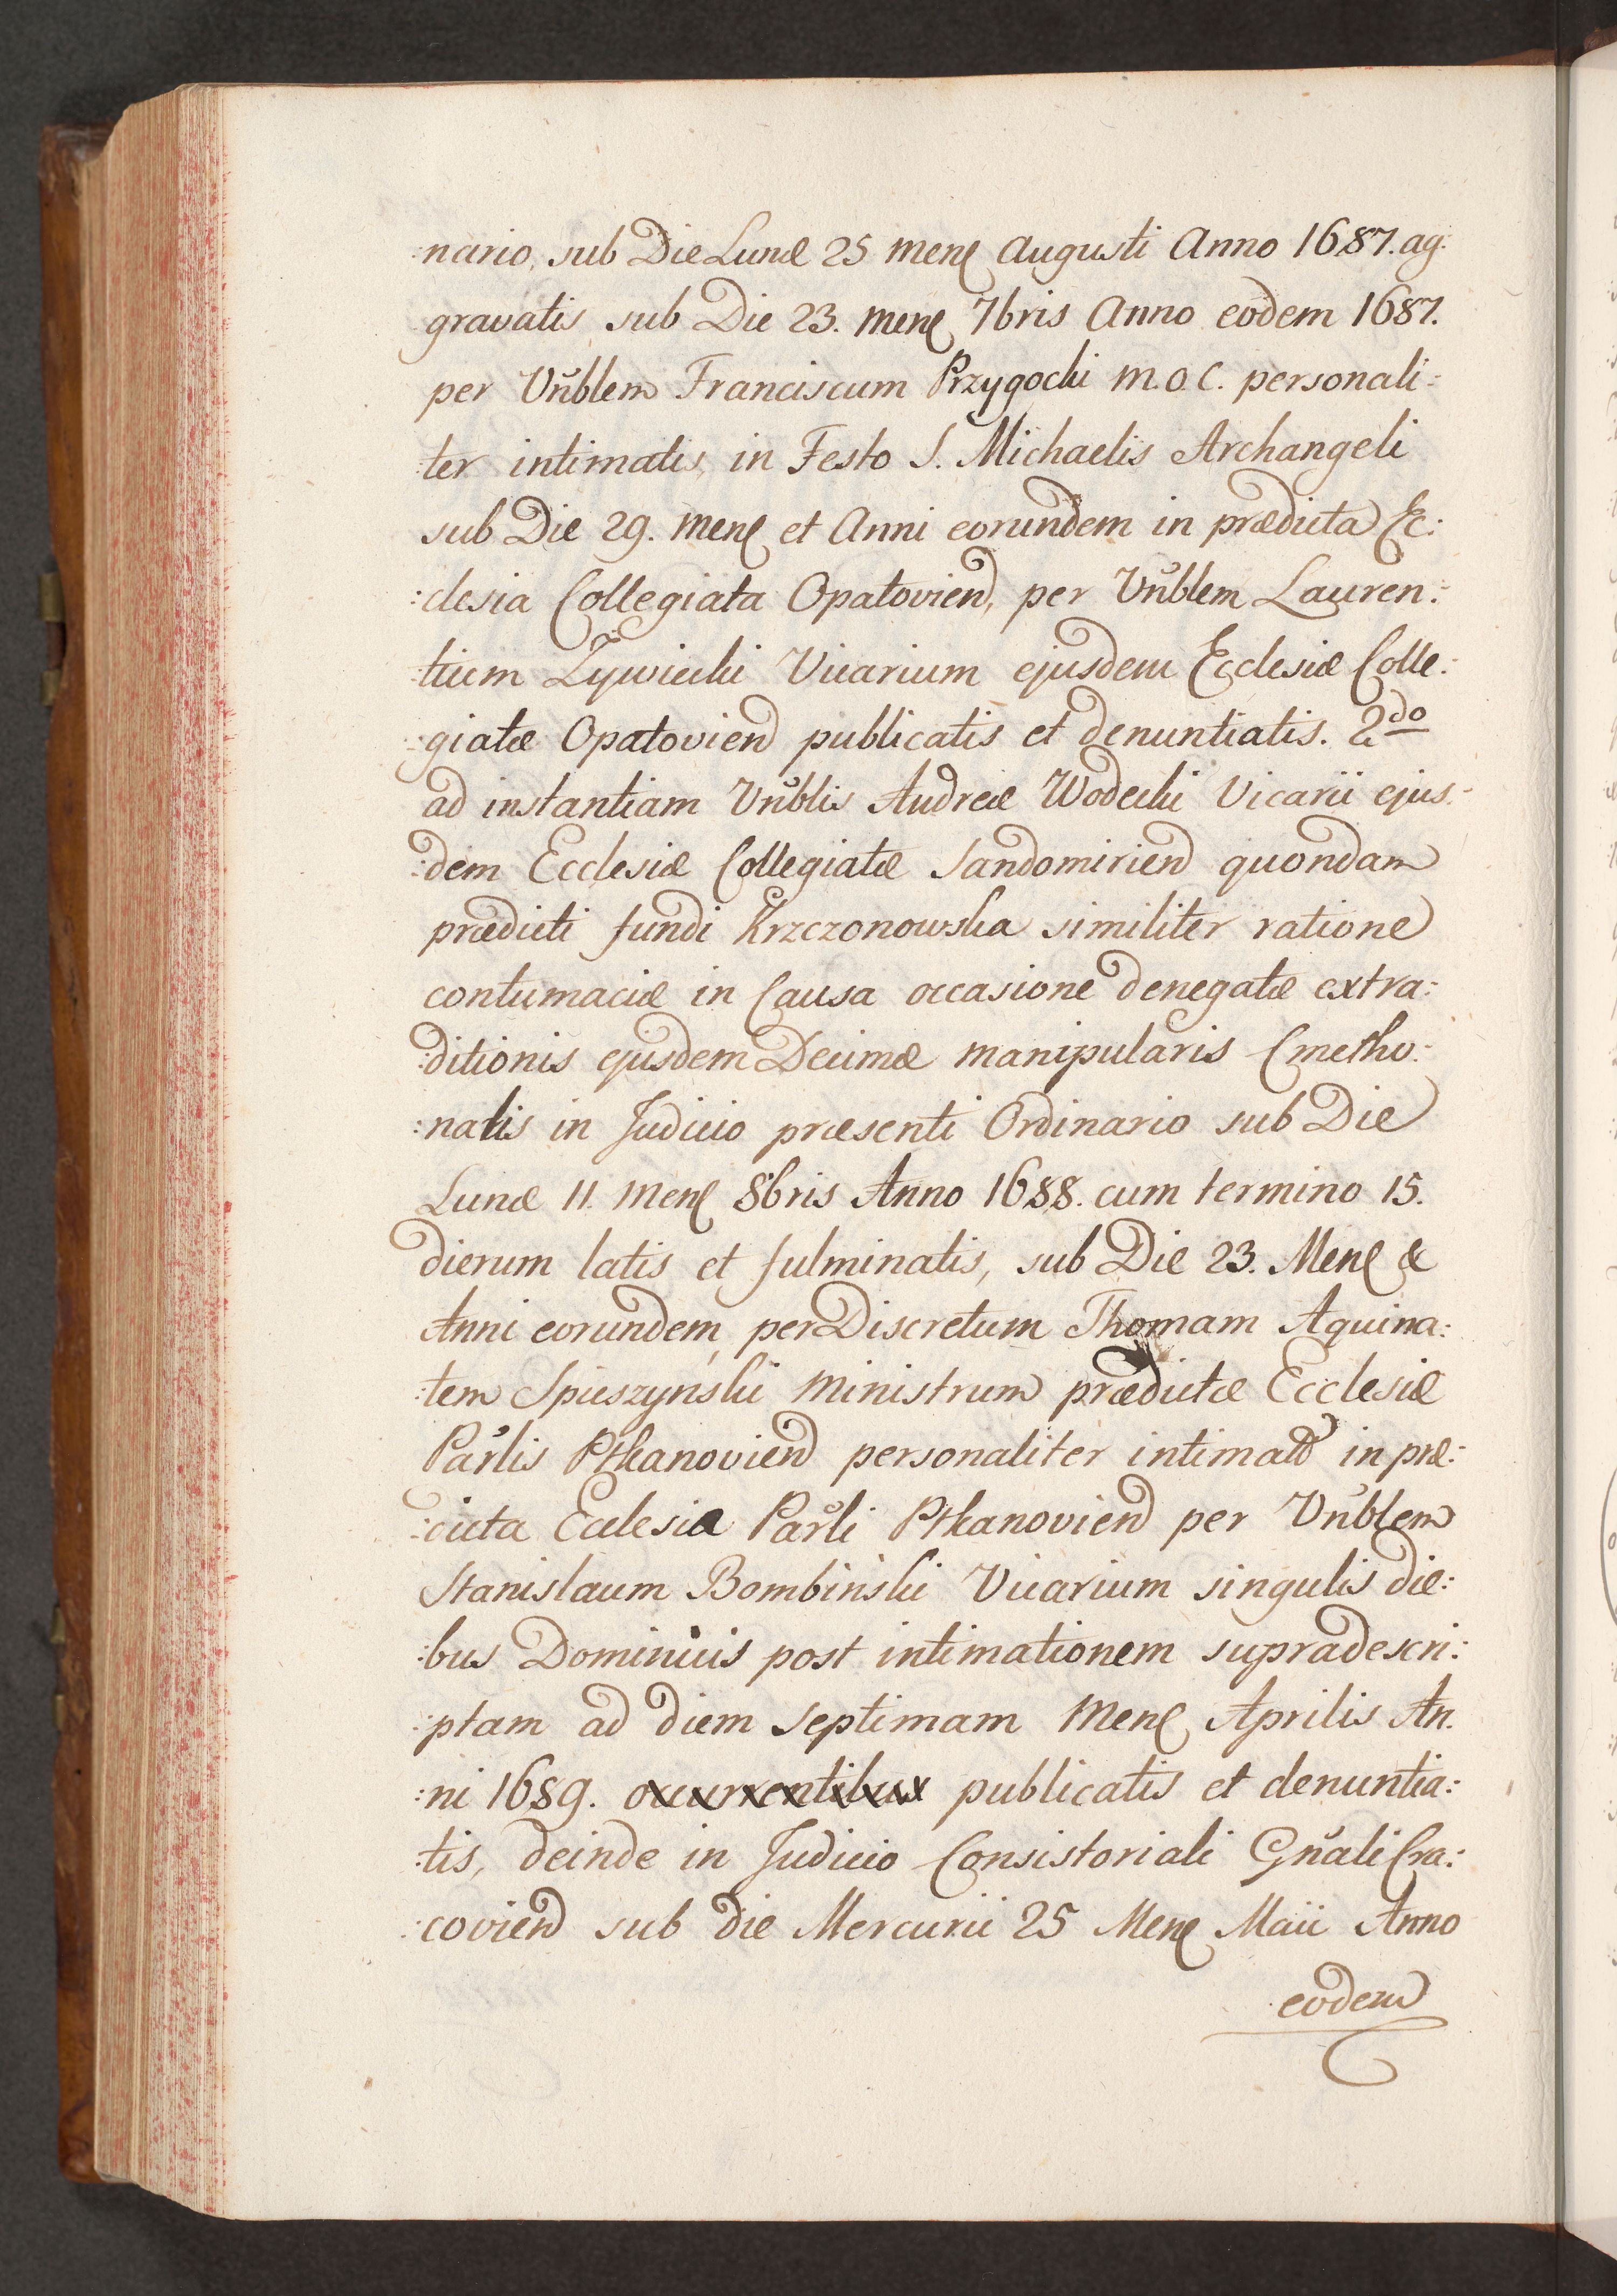 :nario, sub Die Lunæ 25 Menß Augusti Anno 1687. ag:
gravatis sub Die 23. Menß 7bris Anno eodem 1687.
per Vn̄blem Franciscum Przygocki M.O.C. personali:
:ter intimatis, in Festo S. Michaelis Archangeli
sub Die 29. Menß et Anni eorundem in prædicta Ec:
:clesia Collegiata Opatovien, per Vn̄blem Lauren:
:tium Zywiecki Vicarium ejusdem Ecclesiæ Colle:
:giatæ Opatovien publicatis et denuntiatis. 2do
ad instantiam Vn̄blis Andreæ Wodecki Vicarii ejus:
:dem Ecclesiæ Collegiatæ Sandomirien quondam
prædicti fundi Krzczonowska similiter ratione
contumaciæ in Causa occasione denegatæ extra:
:ditionis ejusdem Decimæ manipularis Cmetho:
:nalis in Judicio præsenti Ordinario sub Die
Lunæ 11. Menß 8bris Anno 1688. cum termino 15.
dierum latis et fulminatis, sub Die 23. Menß &
Anni eorundem, per Discretum Thomam Aquina:
:tem Spieszynski Ministrum prædictæ Ecclesiæ
Par̄lis Ptkanovien personaliter intimatis in præ:
:dicta Ecclesia Par̄li Ptkanovien per Vn̄blem
Stanislaum Bombinski Vicarium singulis die:
:bus Dominicis post intimationem supradescri:
:ptam ad diem septimam Menß Aprilis An:
:ni 1689. occurrentibus publicatis et denuntia:
:tis, deinde in Judicio Consistoriali Gn̄ali Cra:
:covien sub die Mercurii 25 Menß Maii Anno
eodem